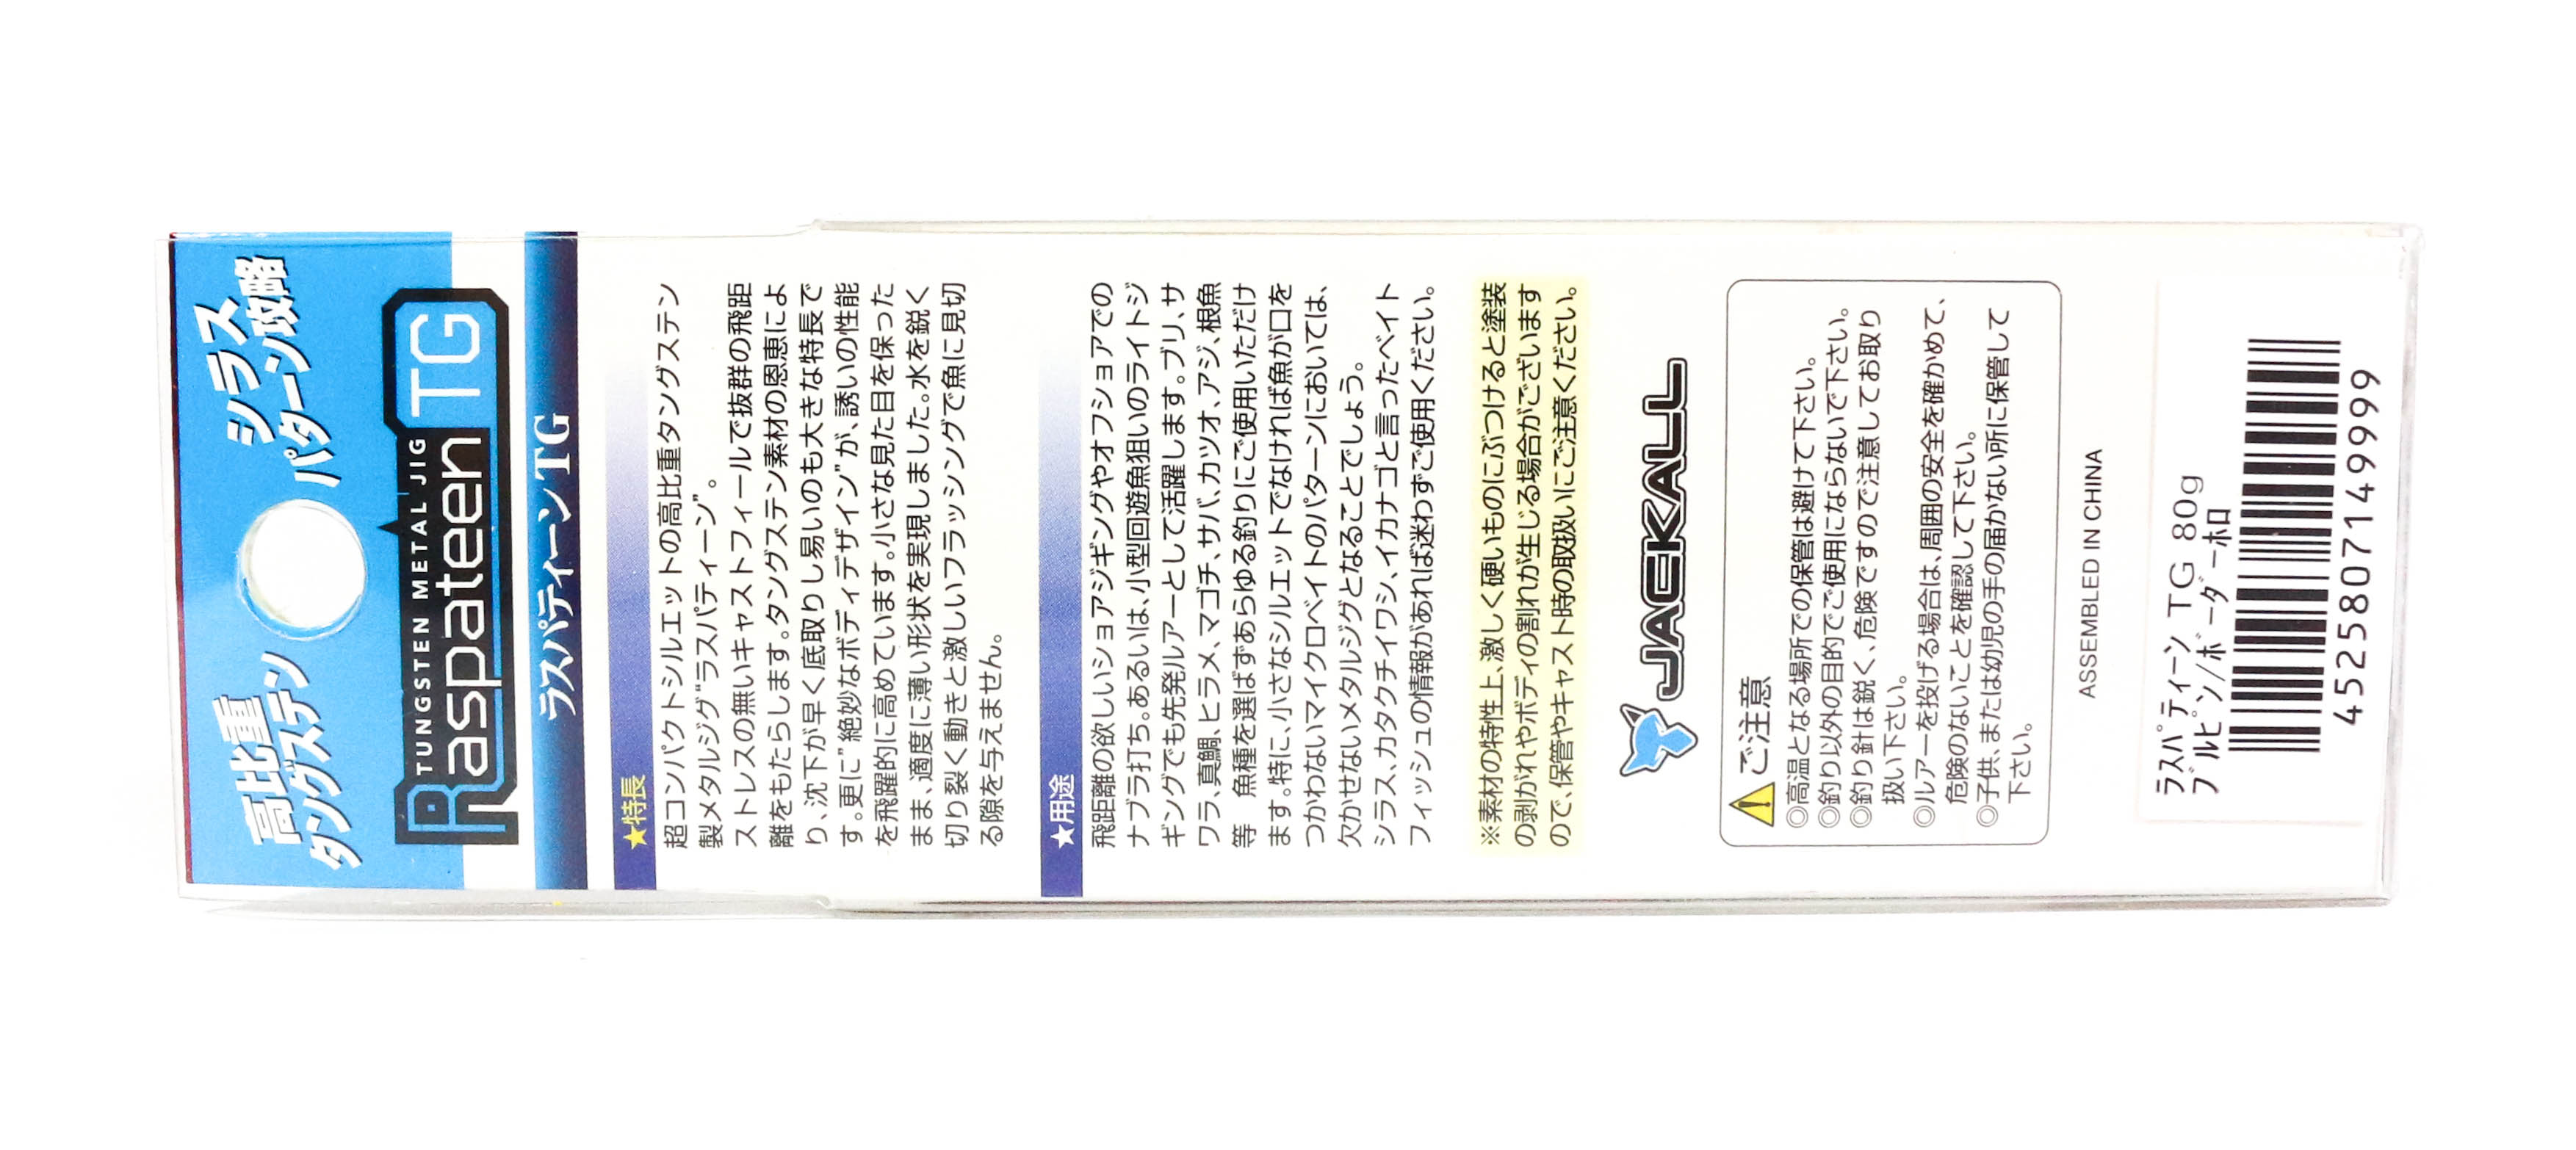 高比重
タングステン
シラス
パターン攻略
TUNGSTEN METAL JIG
Raspateen TG
ラスパティーン TG
★特長
超コンパクトシルエットの高比重タングステン
製メタルジグ"ラスパティーン"。
ストレスの無いキャストフィールで抜群の飛距
離をもたらします。タングステン素材の恩恵によ
り、沈下が早く底取りし易いのも大きな特長で
す。更に"絶妙なボディデザイン"が、誘いの性能
を飛躍的に高めています。小さな見た目を保った
まま、適度に薄い形状を実現しました。水を鋭く
切り裂く動きと激しいフラッシングで魚に見切
る隙を与えません。
★用途
飛距離の欲しいショアジギングやオフショアでの
ナブラ打ち。あるいは、小型回遊魚狙いのライトジ
ギングでも先発ルアーとして活躍します。ブリ、サ
ワラ、真鯛、ヒラメ、マゴチ、サバ、カツオ、アジ、根魚
等 魚種を選ばずあらゆる釣りにご使用いただけ
ます。特に、小さなシルエットでなければ魚が口を
つかわないマイクロベイトのパターンにおいては、
欠かせないメタルジグとなることでしょう。
シラス、カタクチイワシ、イカナゴと言ったベイト
フィッシュの情報があれば迷わずご使用ください。
※素材の特性上、激しく硬いものにぶつけると塗装
の剥がれやボディの割れが生じる場合がございます
ので、保管やキャスト時の取扱いにご注意ください。
JACKALL
ご注意
◎高温となる場所での保管は避けて下さい。
◎釣り以外の目的でご使用にならないで下さい。
◎釣り針は鋭く、危険ですので注意してお取り
扱い下さい。
◎ルアーを投げる場合は、周囲の安全を確かめて、
危険のないことを確認して下さい。
◎子供、または幼児の手の届かない所に保管して
下さい。
ASSEMBLED IN CHINA
ラスパティーン TG 80g
ブルピン/ボーダーホロ
4525807149999